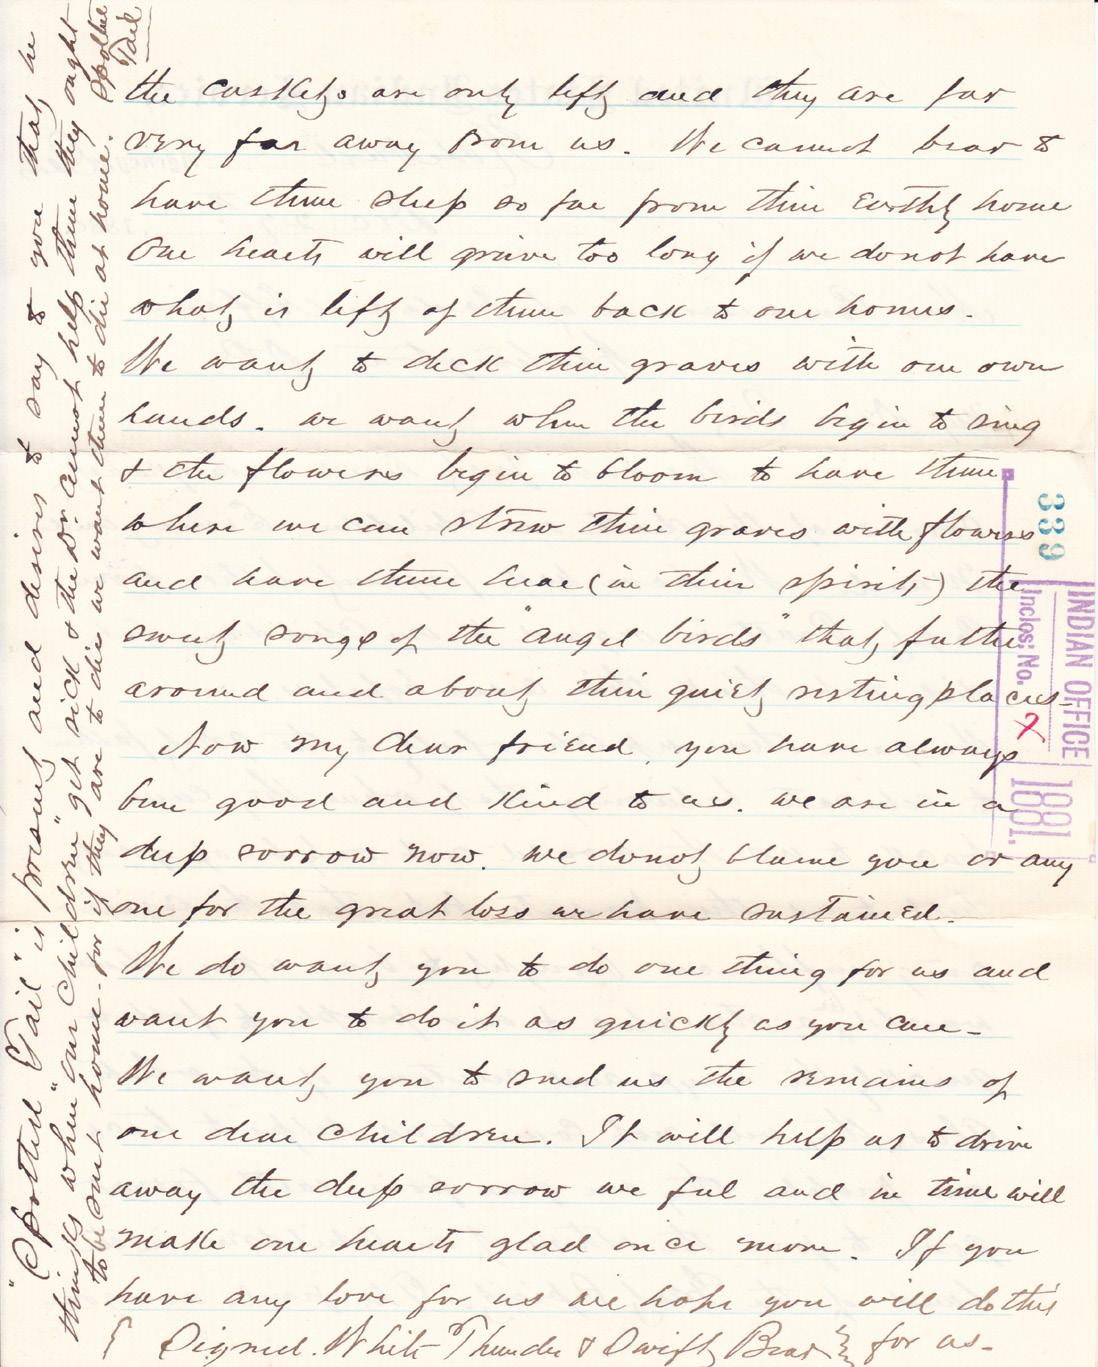 the caskets are only left and they are far
very far away from us. We cannot bear to
have them sleep so far from their Earthly home
Our hearts will grieve too long if we do not have
what is left of them back to our homes.
We want to deck their graves with our own
hands. we want when the birds begin to sing
& the flowers begin to bloom to have them
where we can strew their graves with flowers
and have them hear (in their spirits) the
sweet songs of the "angel birds" that flutter
around and about their quiet resting places-
Now my dear friend, you have always
been good and kind to us. we are in a
deep sorrow now. We do not blame you or any
one for the great loss we have sustained.
We do want you to do one thing for us and
want you to do it as quickly as you can-
We want you to send us the remains of
our dear children. It will help us to drive
away the deep sorrow we feel and in time will
make our hearts glad once more. If you
have any love for us we hope you will do this
for us-
Signed. White Thunder & Swift Bear
"Spotted Tail" is present and desires to say to you that he
thinks when "our children" get sick & the Dr. cannot help them they ought
to be sent home- for if they are to die we want them to die at home.
Spotted
Tail
339
INDIAN OFFICE
Inclos: No. 2
1881
1881.